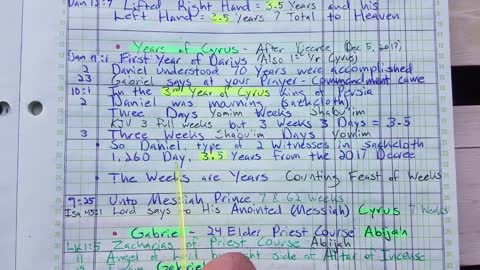 Dan 12:7 Lifted Right Hand = 3.5 Years and his
Left Hand = 3.5 Years 7 Total to Heaven
• Years of Cyrus - After Decree (Dec 5, 2017)
Dan 11:1 First Year of Darius (Also 1st Yr Cyrus)
2 Daniel understood 70 Years were accomplished
23 Gabriel says at your Prayer - Commandment came
10:1 In the 3rd Year of Cyrus King of Persia
2 Daniel was mourning (sackcloth)
Three Days Yomim Weeks Shabu'im
KJV 3 full weeks but 3 Weeks 3 Days = 3.5
3 Three Weeks Shabu'im Days Yomim
• So Daniel, type of 2 Witnesses in sackcloth
1,260 Day, 3.5 Years from the 2017 Decree
• The Weeks are Years Counting Feast of Weeks
9:25 Unto Messiah Prince, 7 & 62 Weeks
Isa 45:1 Lord says to His Anointed (Messiah) Cyrus 7 Weeks
• Gabriel 24 Elder Priest Course Abijah
LK 1:5 Zacharias of Priest Course Abijah
11 Angel of right side of Altar of Incense
Gabriel